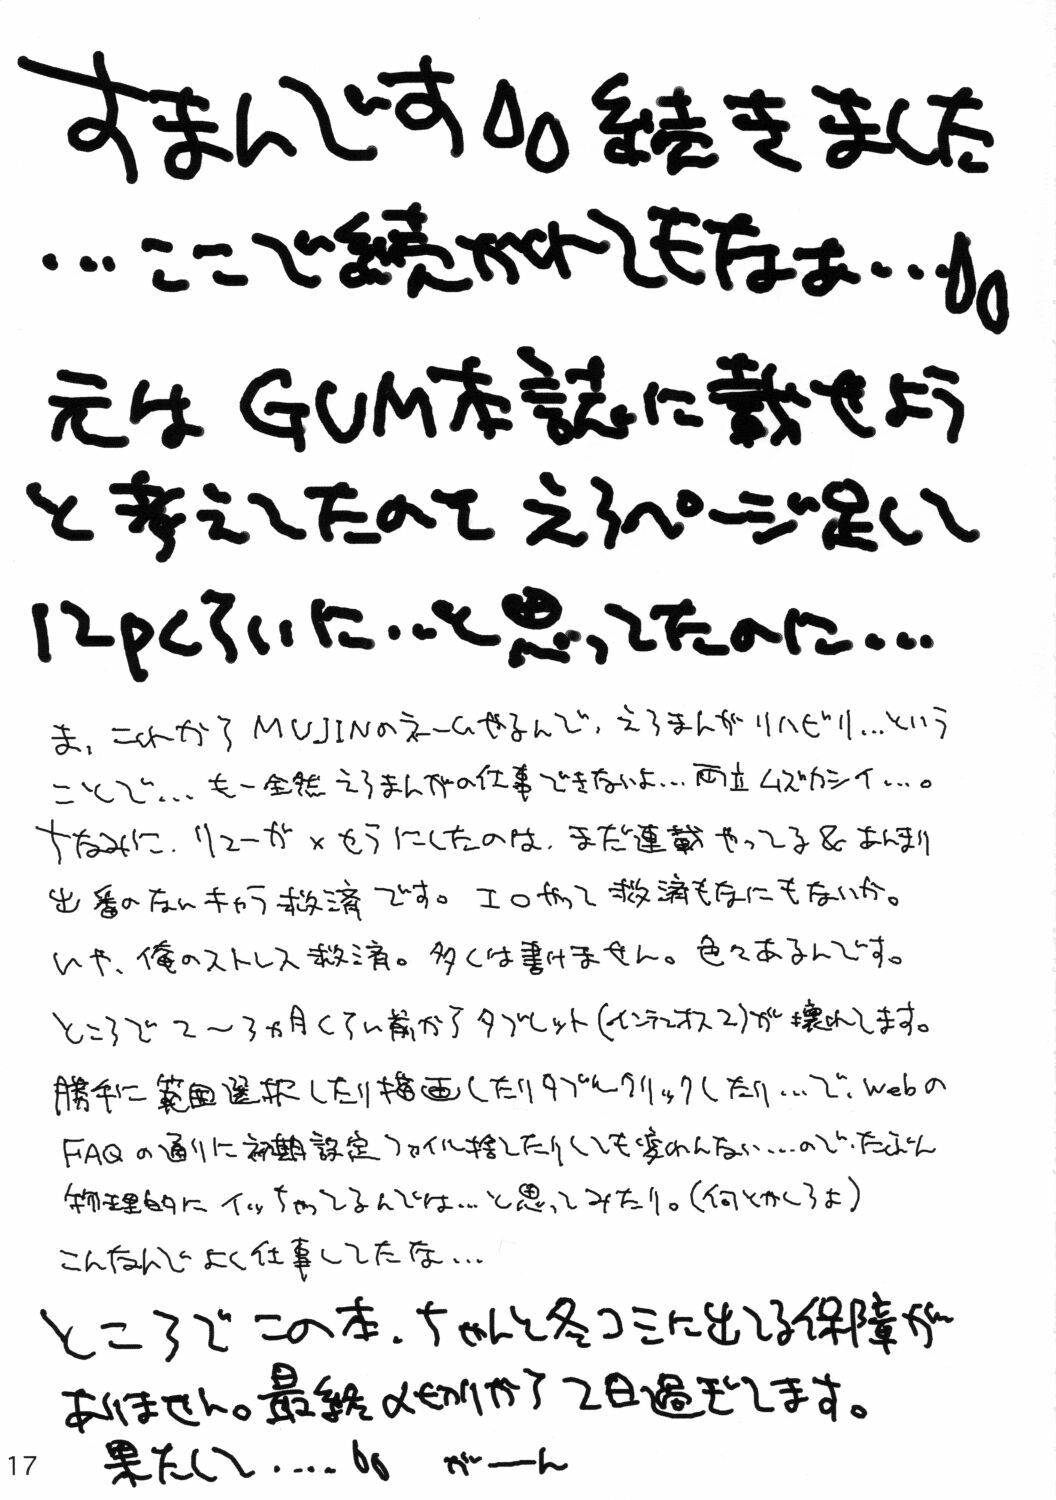 すまんです 続きました
…ここで続かれてもなぁ…
元は GUM本誌に載せよう
と考えてたので えろページ足して
12pくらいに…と思ってたのに…
ま、これから MUJINのネームやるんで、えろまんがリハビリ…という
ことで… もー全然 えろまんがの仕事できないよ… 両立ムズカシイ…。
ちなみに、リューが×セラにしたのは、まだ連載やってる&あんまり
出番のないキャラ救済です。エロやって救済もなにもないか。
いや、俺のストレス救済。多くは書けません。色々あるんです。
ところで 2〜3ヵ月くらい前から タブレット(インテュオス2)が壊れてます。
勝手に範囲選択したり描画したりダブルクリックしたり…で、webの
FAQの通りに初期設定ファイル捨てたりしても変わんない…ので、たぶん
物理的に イッちゃってるんでは…と思ってみたり。(何とかしろよ)
こんなんで よく仕事してたな…
ところで この本、ちゃんと冬コミに出てる保障が
ありません。最終〆切りから 2日過ぎてます。
果たして…. がーん
17